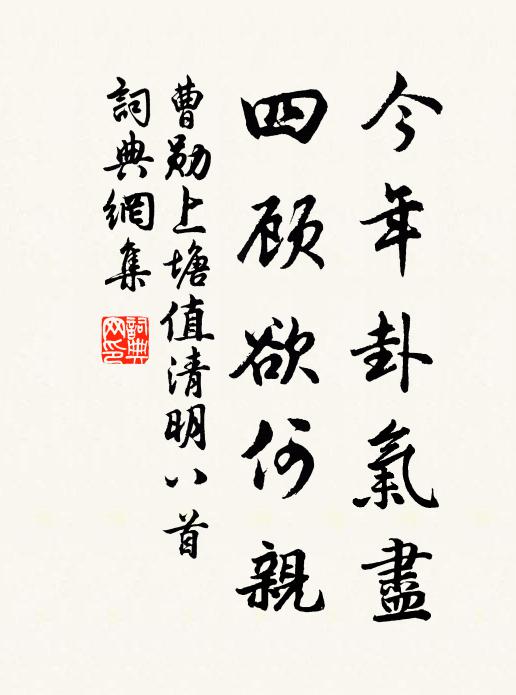 今年卦氣盡
四顾欲何親
曹勛上塘值清明八首
詞典網集
詞典网印